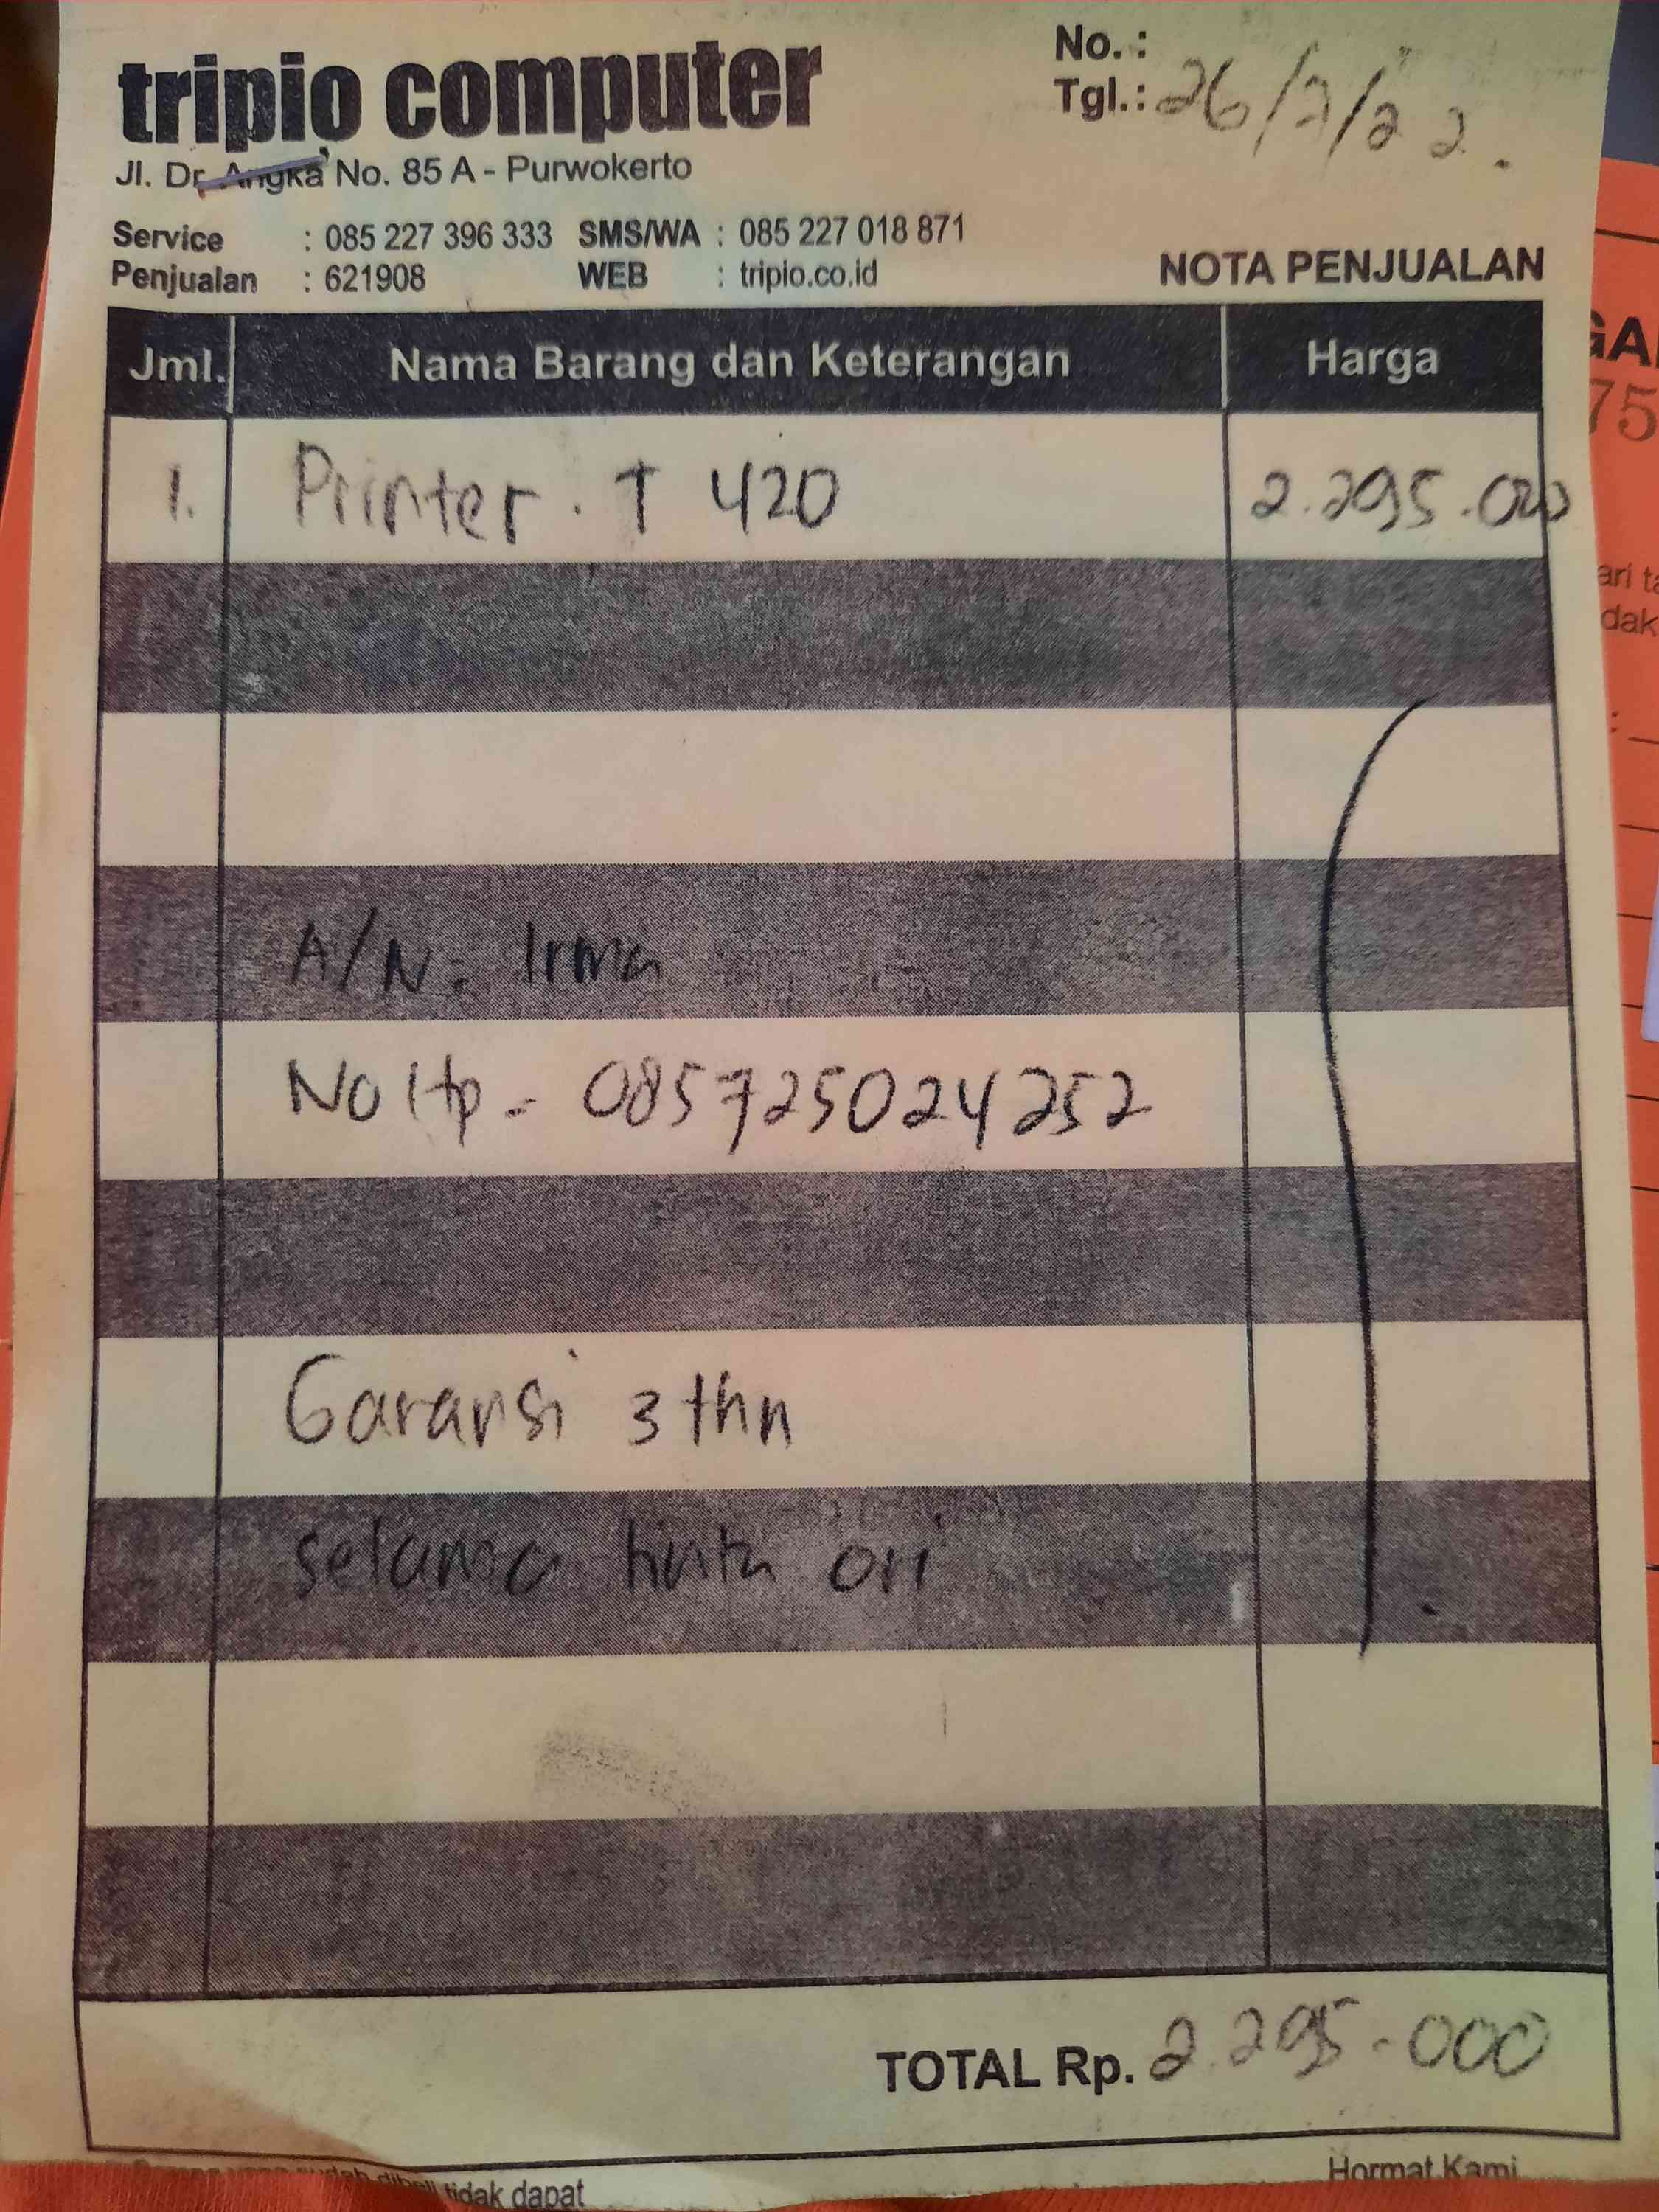 tripio computer
No. :
Tgl.: 26/7/22.
Jl. Dr. Angka No. 85 A - Purwokerto
Service : 085 227 396 333 SMS/WA : 085 227 018 871
Penjualan : 621908 WEB : tripio.co.id
NOTA PENJUALAN
Jml. Nama Barang dan Keterangan Harga
1. Printer . T 420 2.295.000
A/N. Irma
No Hp - 085725024252
Garansi 3 thn
selama tinta ori
TOTAL Rp. 2.295.000
sudah dibeli tidak dapat
Hormat Kami
GA
75
ari ta
dak